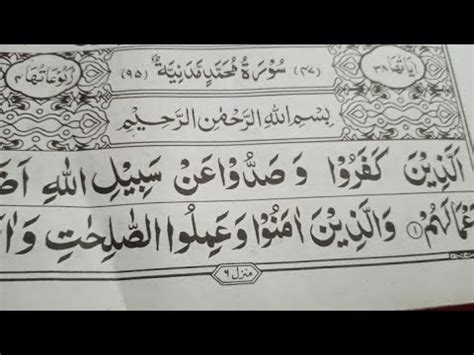 اٰيَاتُهَا ٣٨ (٤٧) سُوْرَةُ مُحَمَّدٍ مَّدَنِيَّةٌ (٩٥) رُكُوْعَاتُهَا ٤
بِسْمِ اللّٰهِ الرَّحْمٰنِ الرَّحِيْمِ
اَلَّذِيْنَ كَفَرُوْا وَصَدُّوْا عَنْ سَبِيْلِ اللّٰهِ اَضَ
عْمَالَهُمْ ۝١ وَالَّذِيْنَ اٰمَنُوْا وَعَمِلُوا الصّٰلِحٰتِ وَاٰ
منزل ٦